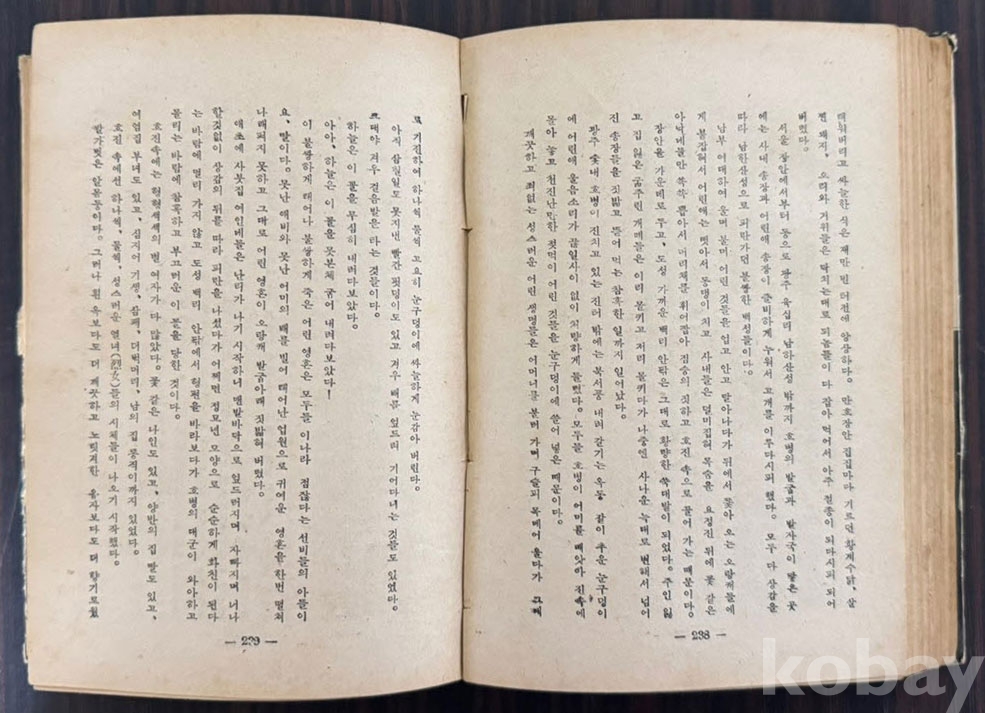 태워버리고 싸늘한 식은 재만 빈 터전에 앙상하다. 만호장안 집집마다 기르던 황계수탉, 살
찐 돼지, 오리와 거위들은 닥치는대로 되놈들이 다 잡아 먹어서 아주 절종이 되다시피 되어
버렸다.
서울 장안에서부터 동으로 광주 육십리 남한산성 밖까지 호병의 발굽과 발자국이 닿은 곳
에는 사내 송장과 어린애 송장이 즐비하게 누워서 고개를 이루다시피 했다. 모두 다 상감을
따라 남한산성으로 피란가던 불쌍한 백성들이다.
남부여대하여 울며 불며 어린 것들을 업고 안고 달아나다가 뒤에서 쫓아 오는 오랑캐들에
게 붙잡혀서 어린애는 뺏아서 동댕이 치고 사내들은 덜미집혀 목숨을 요정진 뒤에 꽃 같은
아낙네들만 쏙쏙 뽑아서 머리채를 휘어잡아 짐승의 짓하고 호진 속으로 끌어 가는 때문이다.
장안을 가운데로 두고, 도성 가까운 백리 안팎은 그대로 황량한 쑥대밭이 되었다. 주인 잃
고 집 잃은 굶주린 개떼들은 이리 몰키고 저리 몰키다가 나중엔 사나운 늑대로 변해서 넘어
진 송장들을 짓밟고 뜯어 먹는 참혹한 일까지 일어났다.
광주 숯내 호병이 진치고 있는 진터 밖에는 북서풍 내려 갈기는 유동 잠이 추운 눈구덩이
에 어린애 울음소리가 끊일사이 없이 처량하게 들렸다. 모두들 호병이 어미를 빼앗아 진속에
몰아 넣고 천진난만한 젖먹이 어린 것들을 눈구덩이에 쓸어 넣은 때문이다.
깨끗하고 죄없는 성스러운 어린 생명들은 어머니를 불러 가며 구슬피 목메어 울다가 그제
— 238 —
로 기진하여 하나씩 둘씩 고요히 눈구덩이에 싸늘하게 눈감아 버린다.
아직 삼칠일도 못지난 빨간 핏덩이도 있고 겨우 배를 엎드려 기어다니는 것들도 있었다.
그때야 겨우 걸음발은 타는 것들이다.
하늘은 이 꼴을 무심히 내려다보았다.
아아, 하늘은 이 꼴을 못본체 굽어 내려다보았다!
이 불쌍하게 태어나 불쌍하게 죽은 어린 영혼은 모두들 이나라 점잖다는 선비들의 아들이
요, 딸이다. 못난 애비와 못난 어미의 배를 빌어 태어난 업원으로 귀여운 영혼을 한번 펼쳐
나래펴지 못하고 그대로 어린 영혼이 오랑캐 발굽아래 짓밟혀 버렸다.
애초에 사붓집 여인네들은 난리가 나기 시작하니 맨발바닥으로 엎드러지며 자빠지며 너나
할것없이 상감의 뒤를 따라 피란을 나섰다가 어쩌면 정묘년 모양으로 순순하게 화친이 된다
는 바람에 멀리 가지 않고 도성 백리 안팎에서 형편을 바라보다가 호병의 대군이 와아하고
몰리는 바람에 참혹하고 부끄러운 이 꼴을 당한 것이다.
호진속에는 형형색색의 별 여자가 다 많았다. 꽃 같은 나인도 있고, 양반의 집 딸도 있고,
여염집 부녀도 있고, 심지어 기생, 삼패, 더벅머리, 남의 집 통직이까지 있었다.
호진 속에선 하나씩, 둘씩, 성스러운 열녀(烈女)들의 시체들이 나오기 시작했다.
발가벗은 알몸둥이다. 그러나 흰 옥보다도 더 깨끗하고 노릿거한 용자보다도 더 향기로웠
— 239 —
kobay